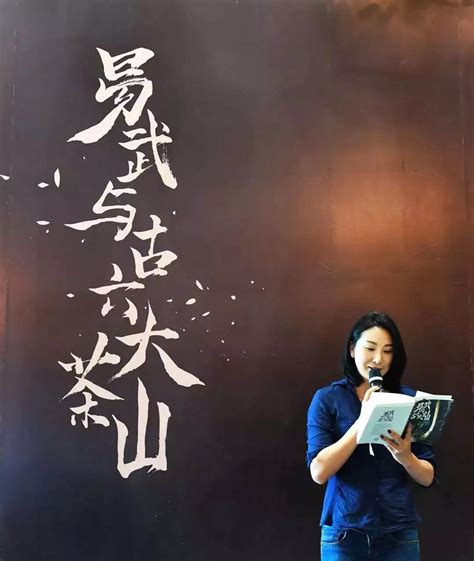 易武与古六大茶山
易武